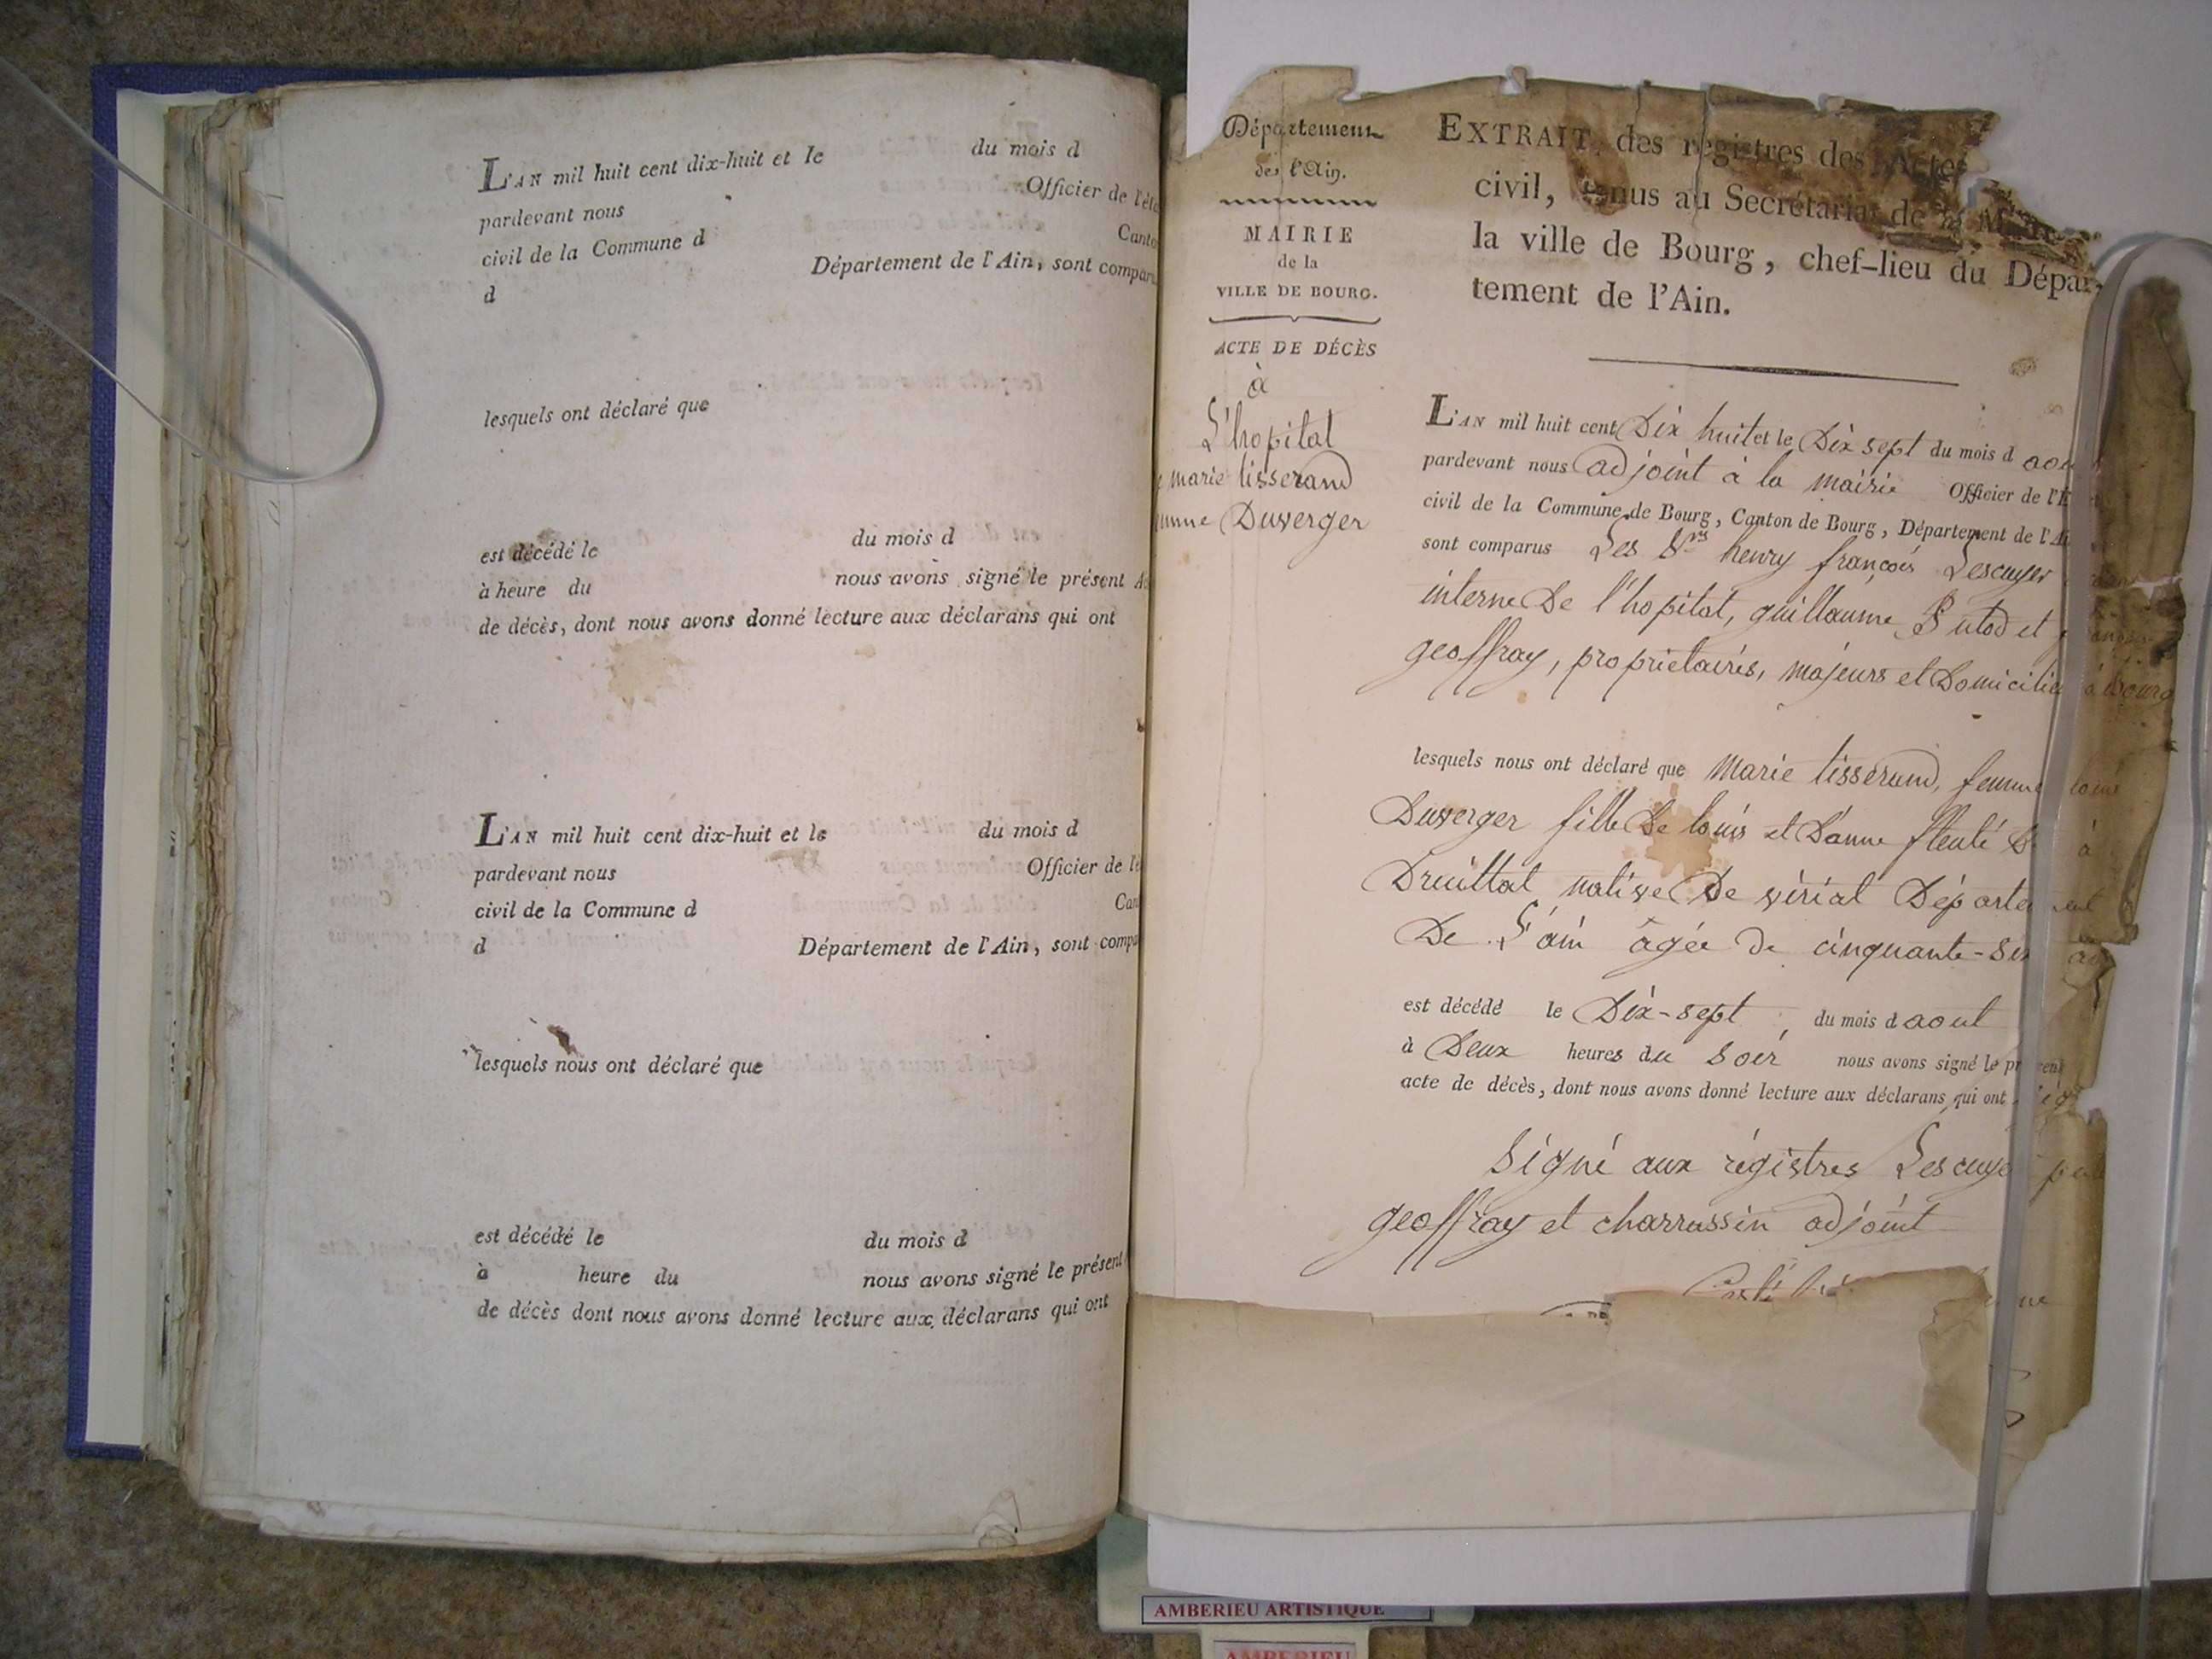 L'AN mil huit cent dix-huit et le du mois d
pardevant nous Officier de l'éta
civil de la Commune d Canto
d Département de l'Ain, sont compar
lesquels ont déclaré que
est décédé le du mois d
à heure du nous avons signé le présent A
de décès, dont nous avons donné lecture aux déclarans qui ont
L'AN mil huit cent dix-huit et le du mois d
pardevant nous Officier de l'é
civil de la Commune d Can
d Département de l'Ain, sont compa
lesquels nous ont déclaré que
est décédé le du mois d
à heure du nous avons signé le présent
de décès dont nous avons donné lecture aux déclarans qui ont
Département
de l'Ain.
MAIRIE
de la
VILLE DE BOURG.
ACTE DE DÉCÈS
à
L'hopital
marie tisserand
Duverger
EXTRAIT des registres des Actes
civil, tenus au Secrétariat de la
la ville de Bourg, chef-lieu du Dépar-
tement de l'Ain.
L'AN mil huit cent Dix huit et le Dix sept du mois d aou
pardevant nous adjoint à la mairie Officier de l'E
civil de la Commune de Bourg, Canton de Bourg, Département de l'Ai
sont comparus Les Srs henry françois Lescuyer
interne De l'hopital, guillaume Putod et
geoffray, proprietairés, majeurs et Domicilié à Bourg
lesquels nous ont déclaré que Marie tisserand, femme loui
Duverger fille De louis et D'anne à
Druillat native De virial Departement
De L'ain âgée De cinquante-six
est décédé le Dix-sept, du mois d aout
à Deux heures du Soir nous avons signé le présent
acte de décès, dont nous avons donné lecture aux déclarans, qui ont
Signé aux régistres Lescuye
geoffray et charrassin adjoint
AMBERIEU ARTISTIQUE
AMBERIEU